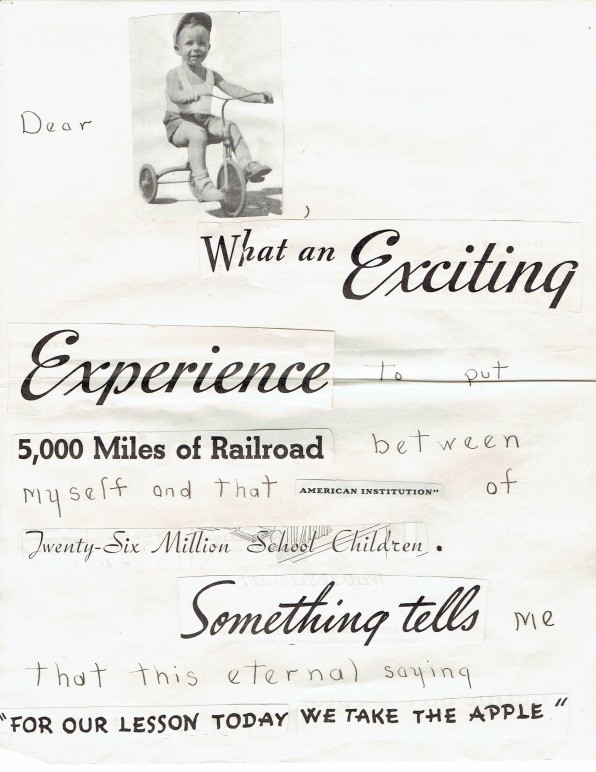 Dear ,
What an Exciting
Experience to put
5,000 Miles of Railroad between
myself and that AMERICAN INSTITUTION" of
Twenty-Six Million School Children.
Something tells me
that this eternal saying
"FOR OUR LESSON TODAY WE TAKE THE APPLE"